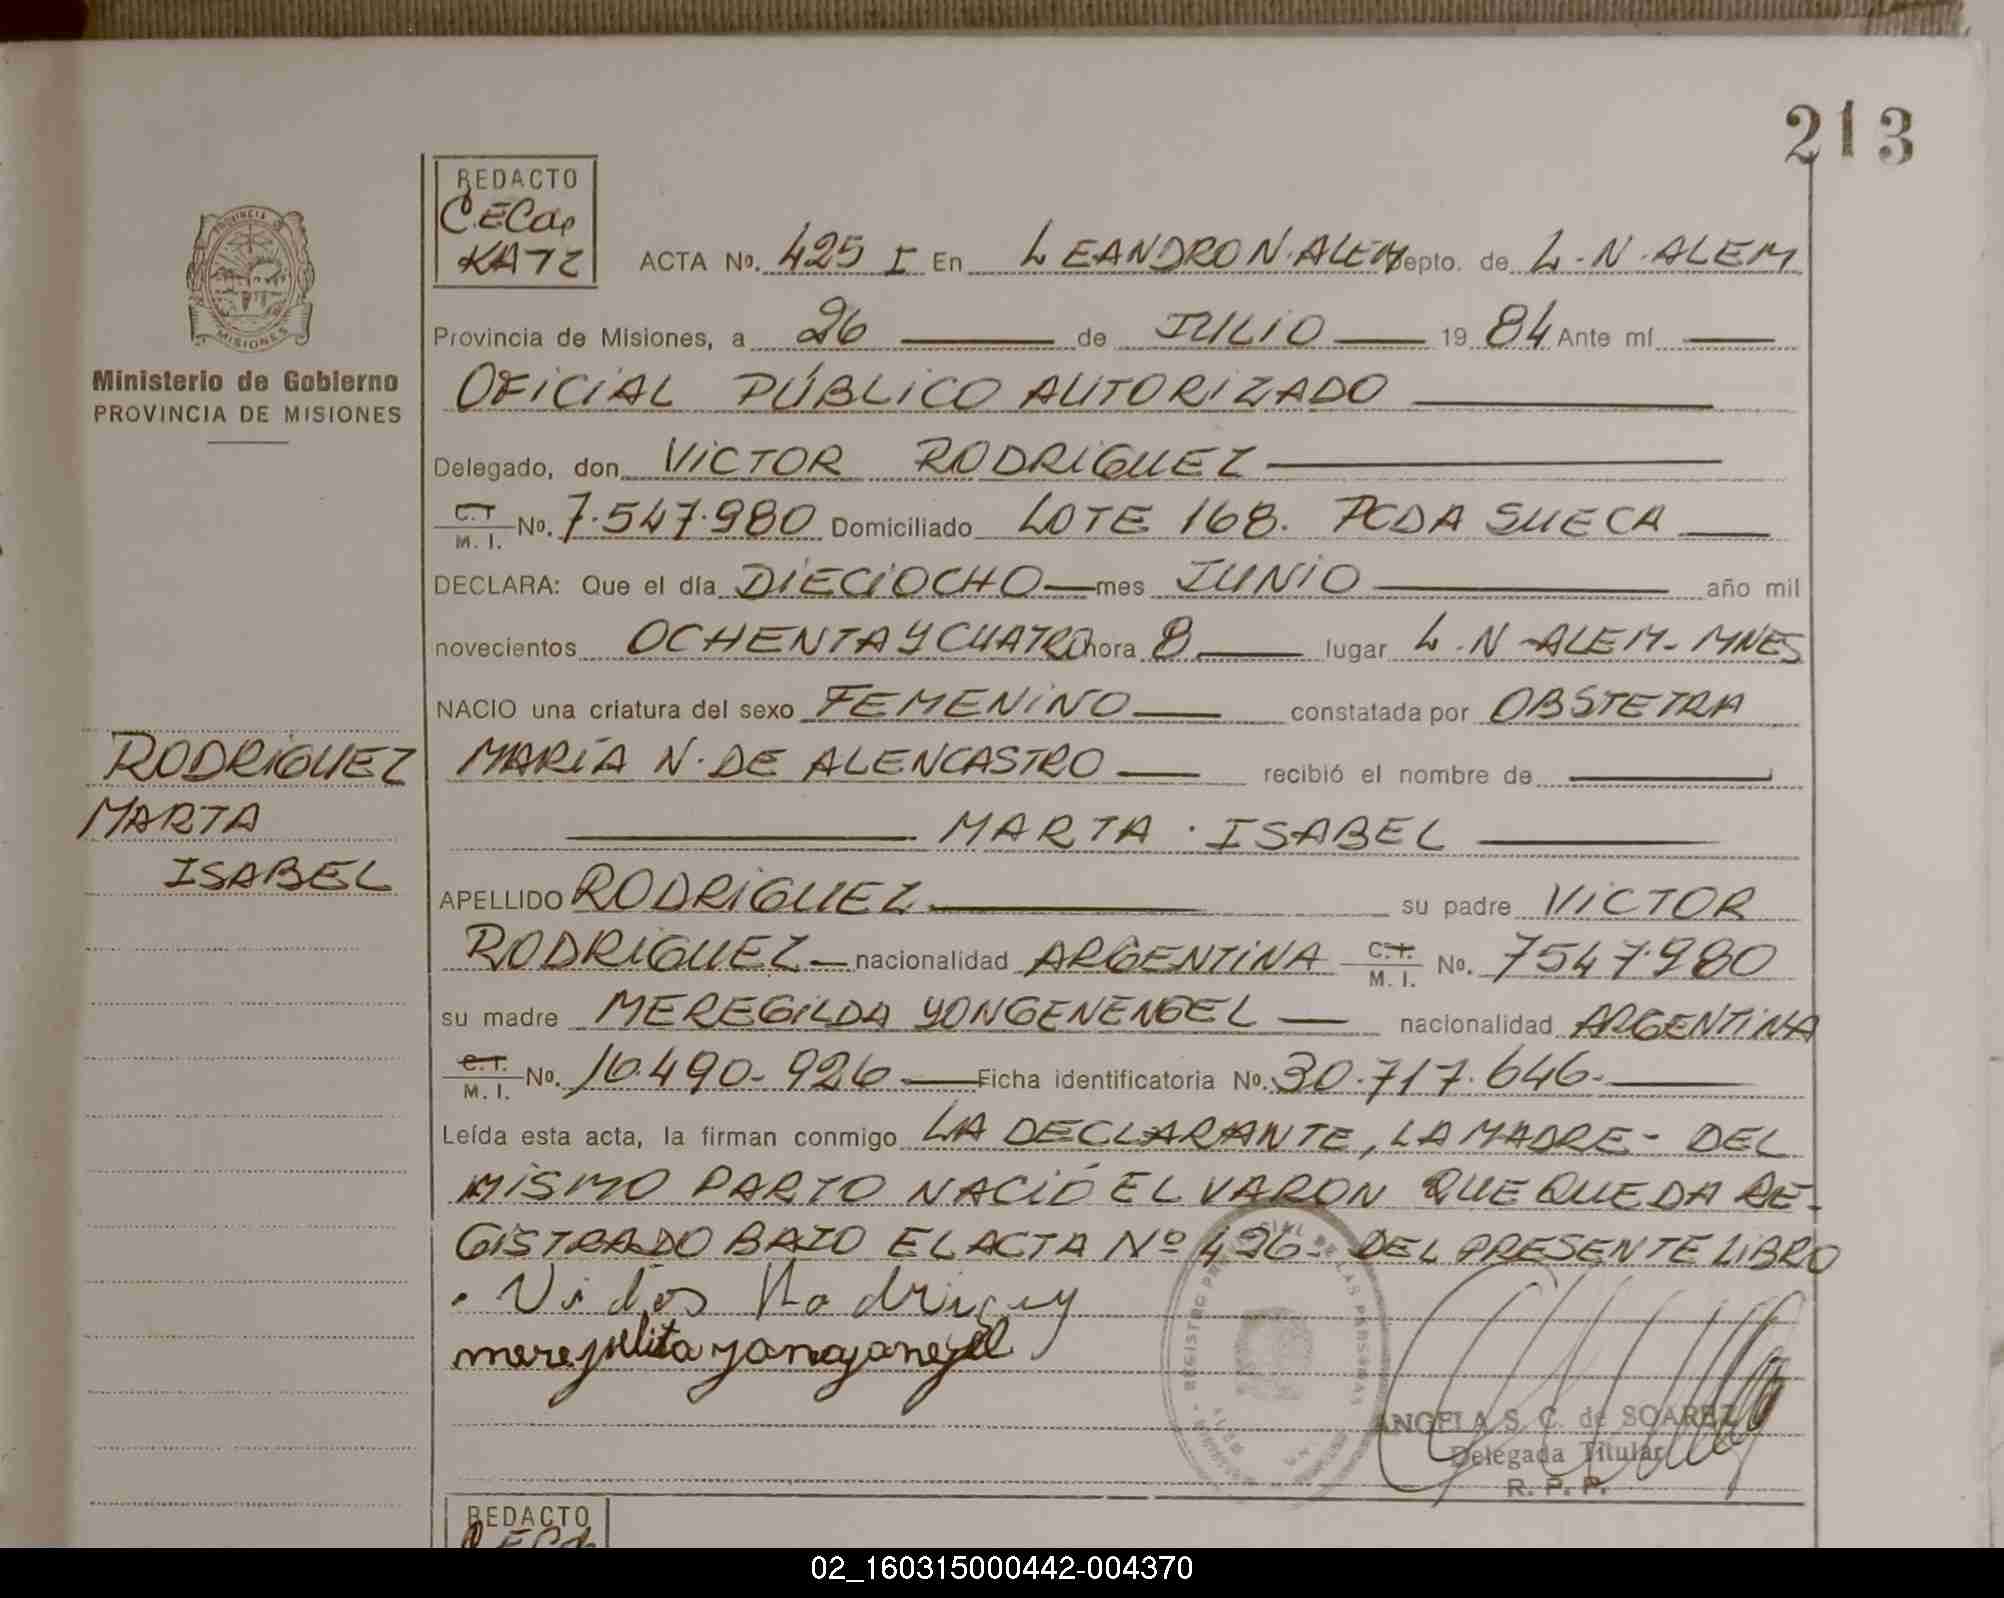 213
PROVINCIA
MISIONES
Ministerio de Gobierno
PROVINCIA DE MISIONES
RODRIGUEZ
MARTA
ISABEL
REDACTO
KATZ
ACTA No. 425 I En LEANDRO N. ALEM Depto. de L. N. ALEM
Provincia de Misiones, a 26 de JULIO 19 84 Ante mí
OFICIAL PÚBLICO AUTORIZADO
Delegado, don VICTOR RODRIGUEZ
C.I. M. I. No. 7.547.980 Domiciliado LOTE 168. PCDA SUECA
DECLARA: Que el día DIECIOCHO mes JUNIO año mil
novecientos OCHENTA Y CUATRO hora 8 lugar L. N - ALEM - MNES
NACIO una criatura del sexo FEMENINO constatada por OBSTETRA
MARÍA N. DE ALENCASTRO recibió el nombre de
MARTA ISABEL
APELLIDO RODRIGUEZ su padre VICTOR
RODRIGUEZ nacionalidad ARGENTINA C.I. M. I. No. 7547.980
su madre MEREGILDA YONGENENGEL nacionalidad ARGENTINA
C.I. M. I. No. 10.490.926 Ficha identificatoria No. 30.717.646.
Leída esta acta, la firman conmigo LA DECLARANTE, LA MADRE - DEL
MISMO PARTO NACIÓ EL VARON QUE QUEDA RE-
GISTRADO BAJO EL ACTA Nº 426 - DEL PRESENTE LIBRO
REGISTRO PROVINCIAL DE LAS PERSONAS
ANGELA S. C. de SOAREZ
Delegada Titular
R. P. P.
REDACTO
02_160315000442-004370